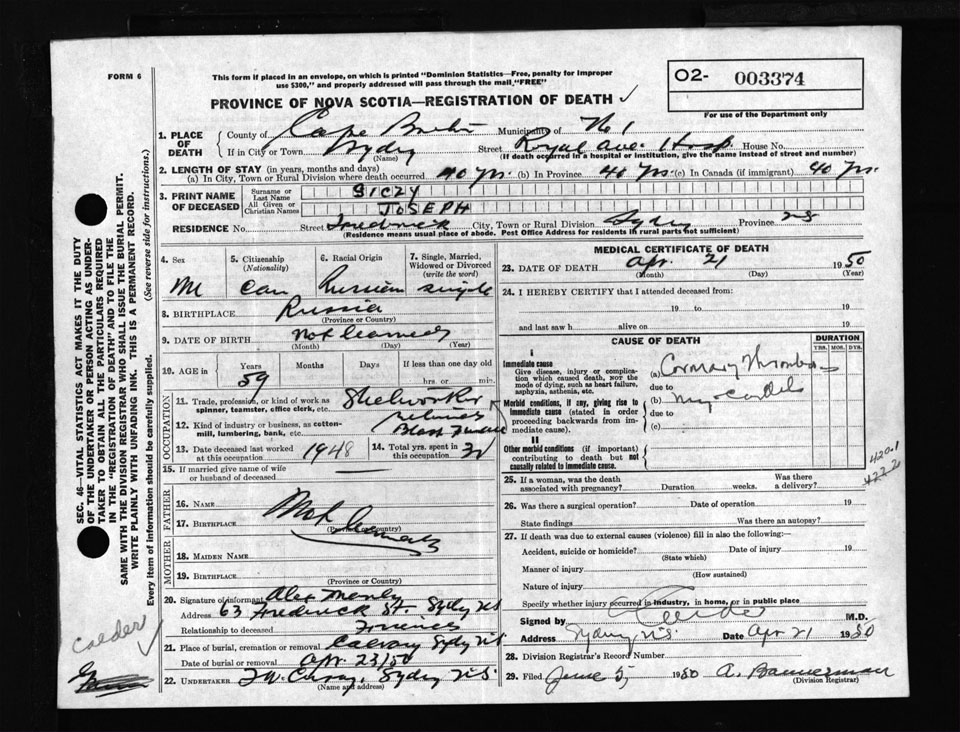 FORM 6
This form if placed in an envelope, on which is printed "Dominion Statistics—Free, penalty for improper
use $300," and properly addressed will pass through the mail, "FREE"
O2- 003374
For use of the Department only
PROVINCE OF NOVA SCOTIA—REGISTRATION OF DEATH ✓
1. PLACE OF DEATH
County of Cape Breton Municipality of No 1
If in City or Town Sydney Street Royal Ave. Hosp. House No.
(Name) (If death occurred in a hospital or institution, give the name instead of street and number)
2. LENGTH OF STAY (in years, months and days)
(a) In City, Town or Rural Division where death occurred 40 yrs. (b) In Province 40 yrs. (c) In Canada (if immigrant) 40 yrs.
3. PRINT NAME OF DECEASED
Surname or Last Name SICZY
All Given or Christian Names JOSEPH
RESIDENCE No. Street Frederick City, Town or Rural Division Sydney Province N.S
(Residence means usual place of abode. Post Office Address for residents in rural parts not sufficient)
4. Sex M
5. Citizenship (Nationality) Can
6. Racial Origin Russian
7. Single, Married, Widowed or Divorced (write the word) single
8. BIRTHPLACE Russia
(Province or Country)
9. DATE OF BIRTH Not learned
(Month) (Day) (Year)
10. AGE in Years 59 Months Days If less than one day old
hrs. or min.
OCCUPATION
11. Trade, profession, or kind of work as
spinner, teamster, office clerk, etc. Steelworker
retired
12. Kind of industry or business, as cotton-
mill, lumbering, bank, etc. Blast Furnace
13. Date deceased last worked
at this occupation 1948
14. Total yrs. spent in
this occupation 30
15. If married give name of wife
or husband of deceased
FATHER
16. NAME
17. BIRTHPLACE
(Province or Country)
Not learned
MOTHER
18. MAIDEN NAME
19. BIRTHPLACE
(Province or Country)
20. Signature of informant Alex
Address 63 Frederick St. Sydney NS
Relationship to deceased
21. Place of burial, cremation or removal Calvary Sydney N.S
Date of burial or removal Apr. 23/50
22. UNDERTAKER Sydney N.S.
(Name and address)
MEDICAL CERTIFICATE OF DEATH
23. DATE OF DEATH Apr. 21 1950
(Month) (Day) (Year)
24. I HEREBY CERTIFY that I attended deceased from:
19 to 19
and last saw h alive on 19
CAUSE OF DEATH
DURATION
YRS. MOS. DYS.
I
Immediate cause
Give disease, injury or complica-
tion which caused death, not the
mode of dying, such as heart failure,
asphyxia, asthenia, etc.
Morbid conditions, if any, giving rise to
immediate cause (stated in order
proceeding backwards from im-
mediate cause).
II
Other morbid conditions (if important)
contributing to death but not
causally related to immediate cause.
(a) Coronary Thrombo
due to
(b)
due to
(c)
420.1
422.2
25. If a woman, was the death
associated with pregnancy? Duration weeks. Was there
a delivery?
26. Was there a surgical operation? Date of operation 19
State findings Was there an autopsy?
27. If death was due to external causes (violence) fill in also the following:—
Accident, suicide or homicide? Date of injury 19
(State which)
Manner of injury
(How sustained)
Nature of injury
Specify whether injury occurred in industry, in home, or in public place
Signed by Calder M.D.
Address Sydney N.S. Date Apr 21 1950
28. Division Registrar's Record Number
29. Filed June 5 1950 A. Bannerman
(Division Registrar)
SEC. 46—VITAL STATISTICS ACT MAKES IT THE DUTY
OF THE UNDERTAKER OR PERSON ACTING AS UNDER-
TAKER TO OBTAIN ALL THE PARTICULARS REQUIRED
IN THE "REGISTRATION OF DEATH" AND TO FILE THE
SAME WITH THE DIVISION REGISTRAR WHO SHALL ISSUE THE BURIAL PERMIT.
WRITE PLAINLY WITH UNFADING INK. THIS IS A PERMANENT RECORD.
Every item of information should be carefully supplied. (See reverse side for instructions.)
Calder ✓